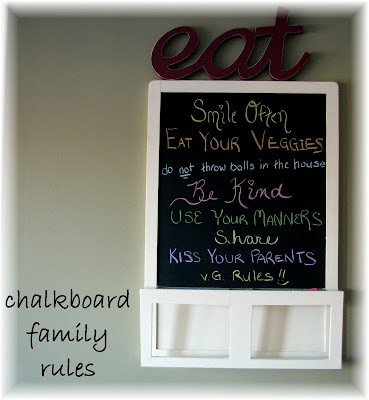 eat
Smile Often
EAT YOUR VEGGIES
do not throw balls in the house
Be Kind
USE YOUR MANNERS
Share
KISS YOUR PARENTS
V.G. Rules!!
chalkboard
family
rules